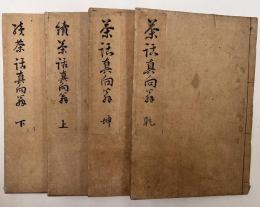 茶話真向翁 乾
茶話真向翁 坤
續茶話真向翁 上
続茶話真向翁 下